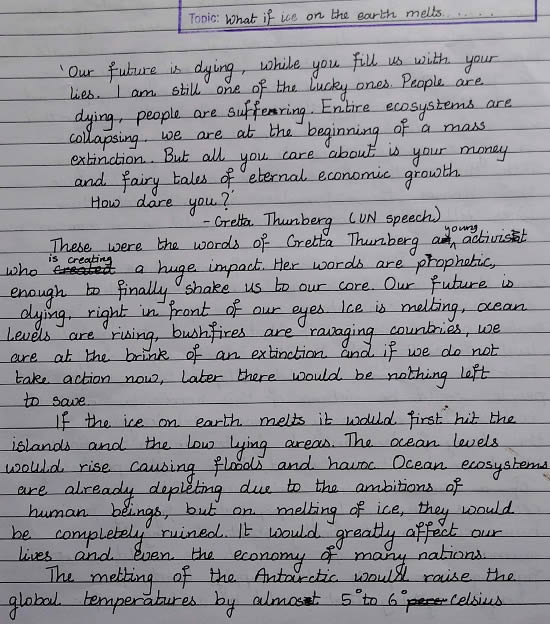 Topic: What if ice on the earth melts......
'Our future is dying, while you fill us with your
lies. I am still one of the lucky ones. People are
dying, people are suffering. Entire ecosystems are
collapsing. we are at the beginning of a mass
extinction. But all you care about is your money
and fairy tales of eternal economic growth
How dare you?'
- Gretta Thunberg (UN speech)
These were the words of Gretta Thunberg a young activist
who is creating a huge impact. Her words are prophetic,
enough to finally shake us to our core. Our future is
dying, right in front of our eyes. Ice is melting, ocean
levels are rising, bushfires are ravaging countries, we
are at the brink of an extinction and if we do not
take action now, later there would be nothing left
to save.
If the ice on earth melts it would first hit the
islands and the low lying areas. The ocean levels
would rise causing floods and havoc Ocean ecosystems
are already depleting due to the ambitions of
human beings, but on melting of ice, they would
be completely ruined. It would greatly affect our
lives and even the economy of many nations.
The melting of the Antarctic would raise the
global temperatures by almost 5° to 6° Celsius